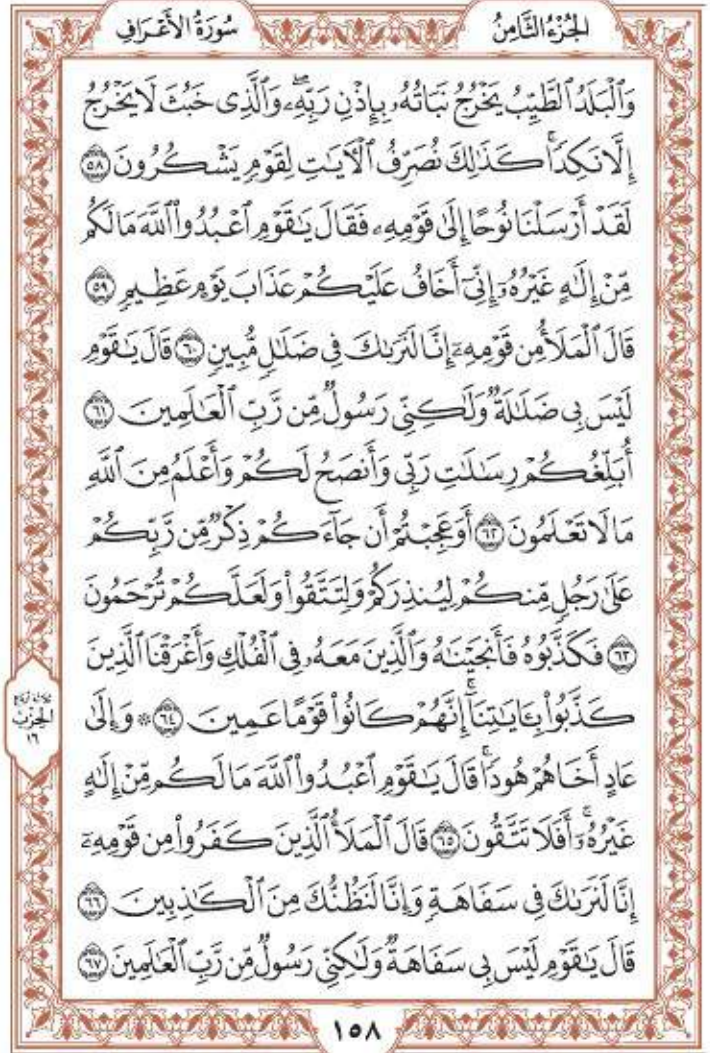 الجُزْءُ الثَّامِنُ
سُورَةُ الأَعْرَافِ
وَٱلْبَلَدُ ٱلطَّيِّبُ يَخْرُجُ نَبَاتُهُۥ بِإِذْنِ رَبِّهِۦۖ وَٱلَّذِى خَبُثَ لَا يَخْرُجُ
إِلَّا نَكِدًاۚ كَذَٰلِكَ نُصَرِّفُ ٱلْءَايَٰتِ لِقَوْمٍ يَشْكُرُونَ ٥٨
لَقَدْ أَرْسَلْنَا نُوحًا إِلَىٰ قَوْمِهِۦ فَقَالَ يَٰقَوْمِ ٱعْبُدُوا۟ ٱللَّهَ مَا لَكُم
مِّنْ إِلَٰهٍ غَيْرُهُۥٓ إِنِّىٓ أَخَافُ عَلَيْكُمْ عَذَابَ يَوْمٍ عَظِيمٍ ٥٩
قَالَ ٱلْمَلَأُ مِن قَوْمِهِۦٓ إِنَّا لَنَرَىٰكَ فِى ضَلَٰلٍ مُّبِينٍ ٦٠ قَالَ يَٰقَوْمِ
لَيْسَ بِى ضَلَٰلَةٌ وَلَٰكِنِّى رَسُولٌ مِّن رَّبِّ ٱلْعَٰلَمِينَ ٦١
أُبَلِّغُكُمْ رِسَٰلَٰتِ رَبِّى وَأَنصَحُ لَكُمْ وَأَعْلَمُ مِنَ ٱللَّهِ
مَا لَا تَعْلَمُونَ ٦٢ أَوَعَجِبْتُمْ أَن جَآءَكُمْ ذِكْرٌ مِّن رَّبِّكُمْ
عَلَىٰ رَجُلٍ مِّنكُمْ لِيُنذِرَكُمْ وَلِتَتَّقُوا۟ وَلَعَلَّكُمْ تُرْحَمُونَ
٦٣ فَكَذَّبُوهُ فَأَنجَيْنَٰهُ وَٱلَّذِينَ مَعَهُۥ فِى ٱلْفُلْكِ وَأَغْرَقْنَا ٱلَّذِينَ
كَذَّبُوا۟ بِـَٔايَٰتِنَآۚ إِنَّهُمْ كَانُوا۟ قَوْمًا عَمِينَ ٦٤ ۞ وَإِلَىٰ
عَادٍ أَخَاهُمْ هُودًاۚ قَالَ يَٰقَوْمِ ٱعْبُدُوا۟ ٱللَّهَ مَا لَكُم مِّنْ إِلَٰهٍ
غَيْرُهُۥٓۚ أَفَلَا تَتَّقُونَ ٦٥ قَالَ ٱلْمَلَأُ ٱلَّذِينَ كَفَرُوا۟ مِن قَوْمِهِۦٓ
إِنَّا لَنَرَىٰكَ فِى سَفَاهَةٍ وَإِنَّا لَنَظُنُّكَ مِنَ ٱلْكَٰذِبِينَ ٦٦
قَالَ يَٰقَوْمِ لَيْسَ بِى سَفَاهَةٌ وَلَٰكِنِّى رَسُولٌ مِّن رَّبِّ ٱلْعَٰلَمِينَ ٦٧
ثلاثة أرباع
الحِزْب
١٦
١٥٨